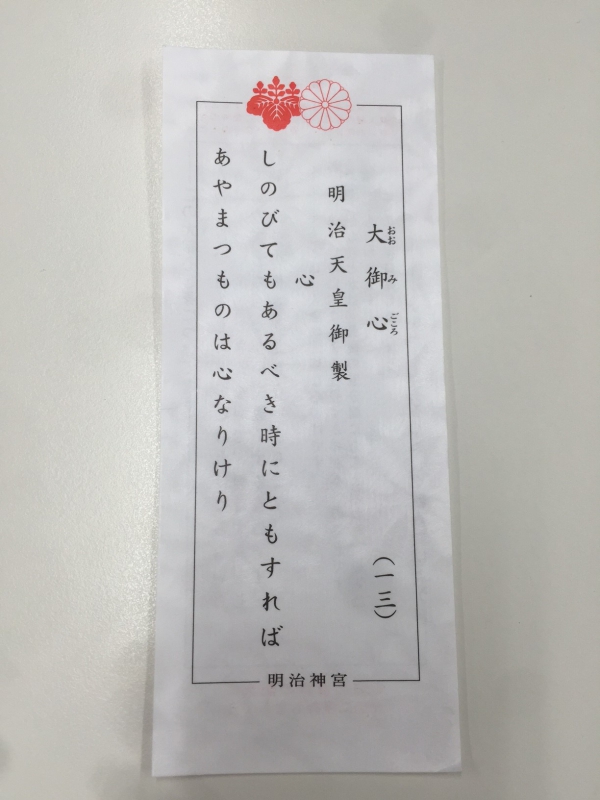 大御心
おおみごころ
(一三)
明治天皇御製
心
しのびてもあるべき時にともすれば
あやまつものは心なりけり
明治神宮